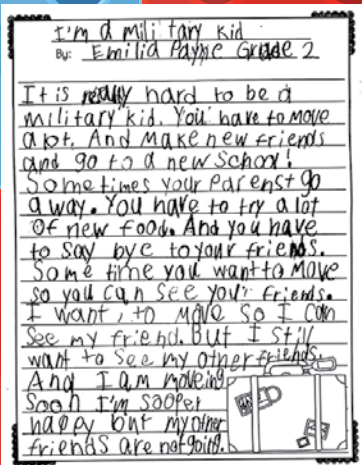 I'm a military kid
By: Emilia Payne Grade 2
It is really hard to be a
military kid. You have to move
a lot. And make new friends
and go to a new school!
Sometimes your parenst go
away. You have to try a lot
of new food. And you have
to say bye to your friends.
Some time you want to move
so you can see your friends.
I want, to move so I can
see my friend. But I still
want to see my other friends.
And I am moveing
soon I'm sooper
happy but my other
friends are not going.